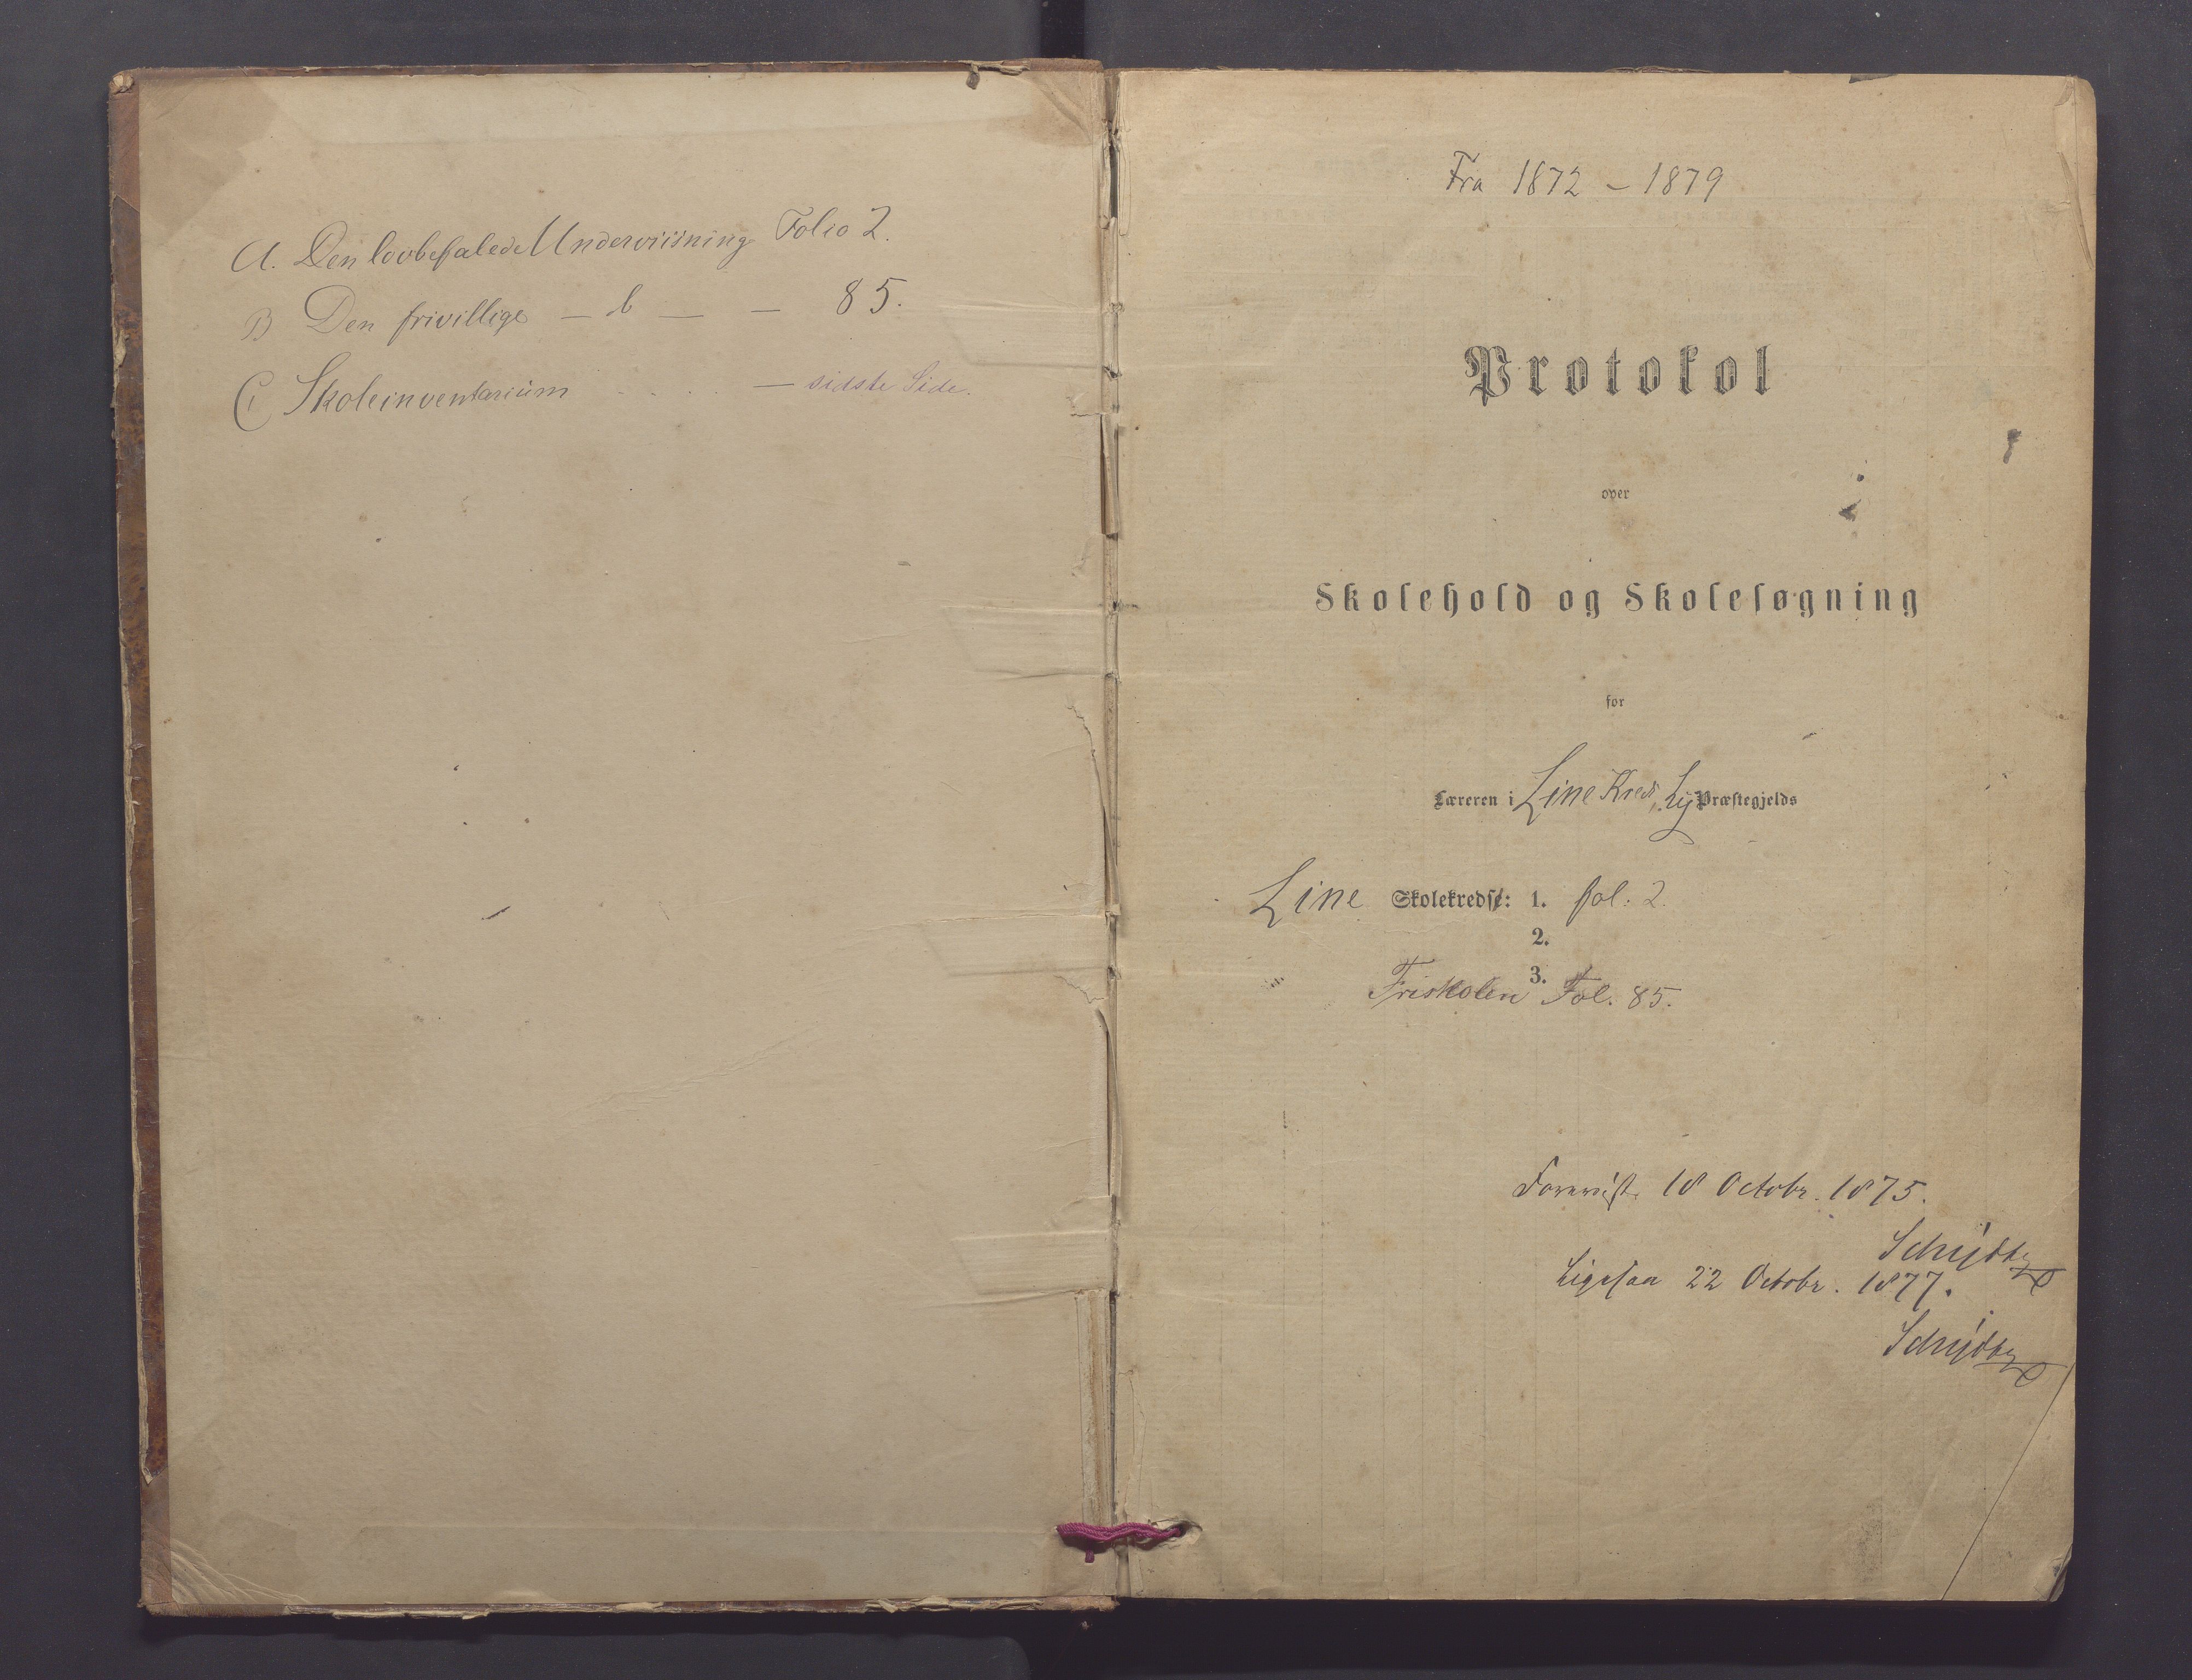 A. Den lovbefalede Underviisning Folio 2.
B Den frivillige — b — — 85.
C Skoleinventarium . . . . — sidste Side.
Fra 1872 – 1879
Protokol
over
Skolehold og Skolesøgning
for
Læreren i Line Kreds, Ly Præstegjelds
Line Skolekredse: 1. fol: 2.
2.
3.
Friskolen Fol. 85.
Foreviist. 18 Octobr. 1875.
Ligesaa 22 Octobr. 1877.